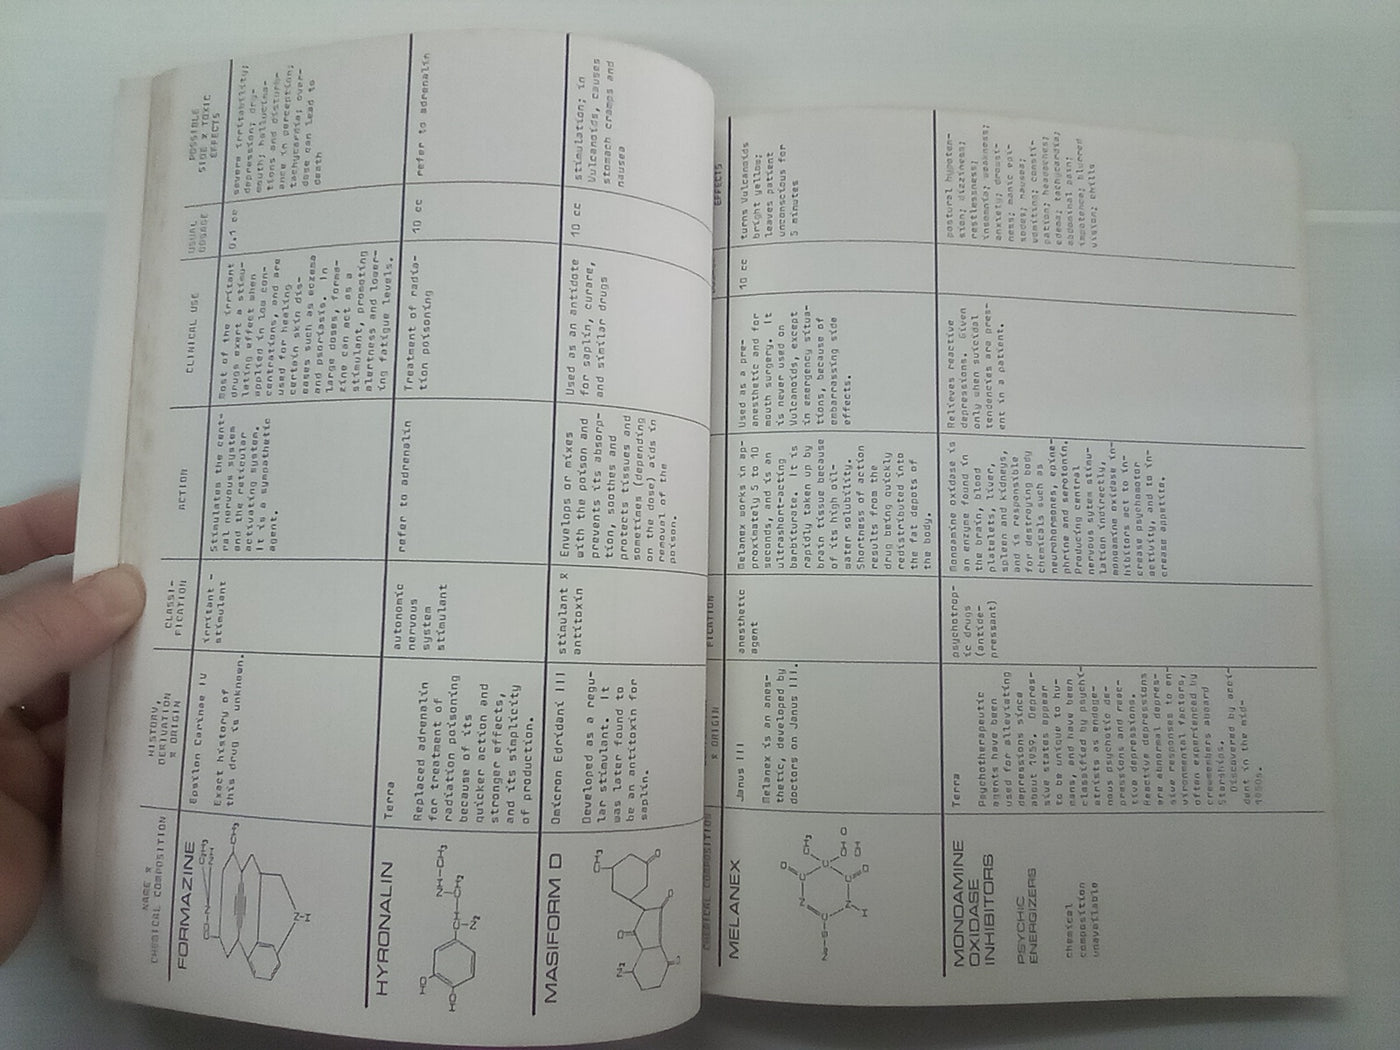 NAME &
CHEMICAL COMPOSITION
HISTORY,
DERIVATION
& ORIGIN
CLASSI-
FICATION
ACTION
CLINICAL USE
USUAL
DOSAGE
POSSIBLE
SIDE & TOXIC
EFFECTS
FORMAZINE
CH₃
NH
Epsilon Carinae IV
Exact history of
this drug is unknown.
irritant -
stimulant
Stimulates the cent-
ral nervous system
and the reticular
activating system.
It is a sympathetic
agent.
Most of the irritant
drugs exert a stimu-
lating effect when
applied in low con-
centrations, and are
used for healing
certain skin dis-
eases such as eczema
and psoriasis. In
large doses, forma-
zine can act as a
stimulant, promoting
alertness and lower-
ing fatigue levels.
0.1 cc
severe irritability;
depression; dry-
mouth; hallucina-
tions and disturb-
ance in perception;
tachycardia; over-
dose can lead to
death
HYRONALIN
HO
HO
CH
CH₂
NH-CH₃
N₂
Terra
Replaced adrenalin
for treatment of
radiation poisoning
because of its
quicker action and
stronger effects,
and its simplicity
of production.
autonomic
nervous
system
stimulant
refer to adrenalin
Treatment of radia-
tion poisoning
10 cc
refer to adrenalin
MASIFORM D
CH₃
N₂
Omicron Edridani III
Developed as a regu-
lar stimulant. It
was later found to
be an antitoxin for
saplin.
stimulant &
antitoxin
Envelops or mixes
with the poison and
prevents its absorp-
tion, soothes and
protects tissues and
sometimes (depending
on the dose) aids in
removal of the
poison.
Used as an antidote
for saplin, curare,
and similar drugs
10 cc
stimulation; in
Vulcanoids, causes
stomach cramps and
nausea
CHEMICAL COMPOSITION
& ORIGIN
FICATION
EFFECTS
MELANEX
CH₃
Janus III
Melanex is an anes-
thetic, developed by
doctors on Janus III.
anesthetic
agent
Melanex works in ap-
proximately 5 to 10
seconds, and is an
ultrashort-acting
barbiturate. It is
rapidly taken up by
brain tissue because
of its high oil-
water solubility.
Shortness of action
results from the
drug being quickly
redistributed into
the fat depots of
the body.
Used as a pre-
anesthetic and for
mouth surgery. It
is never used on
Vulcanoids, except
in emergency situa-
tions, because of
embarassing side
effects.
10 cc
turns Vulcanoids
bright yellow;
leaves patient
unconscious for
5 minutes
MONOAMINE
OXIDASE
INHIBITORS
PSYCHIC
ENERGIZERS
chemical
composition
unavailable
Terra
Psychotherapeutic
agents have been
used for alleviating
depressions since
about 1959. Depres-
sive states appear
to be unique to hu-
mans, and have been
classified by psychi-
atrists as endoge-
nous psychotic de-
pressions and reac-
tive depressions.
Reactive depressions
are abnormal depres-
sive responses to en-
vironmental factors,
often experienced by
crewmembers aboard
Starships.
Discovered by acci-
dent in the mid-
1950s.
psychotrop-
ic drugs
(antide-
pressant)
Monoamine oxidase is
an enzyme found in
the brain, blood
platelets, liver,
spleen and kidneys,
and is responsible
for destroying body
chemicals such as
neurohormones, epine-
phrine and serotonin.
Producing central
nervous sytem stimu-
lation indirectly,
monoamine oxidase in-
hibitors act to in-
crease psychomotor
activity, and to in-
crease appetite.
Relieves reactive
depressions. Given
only when suicidal
tendencies are pres-
ent in a patient.
postural hypoten-
sion; dizziness;
restlessness;
insomnia; weakness;
anxiety; drowsi-
ness; manic epi-
sodes; nausea;
vomiting; consti-
pation; headaches;
edema; tachycardia;
abdominal pain;
impotence; blurred
vision; chills